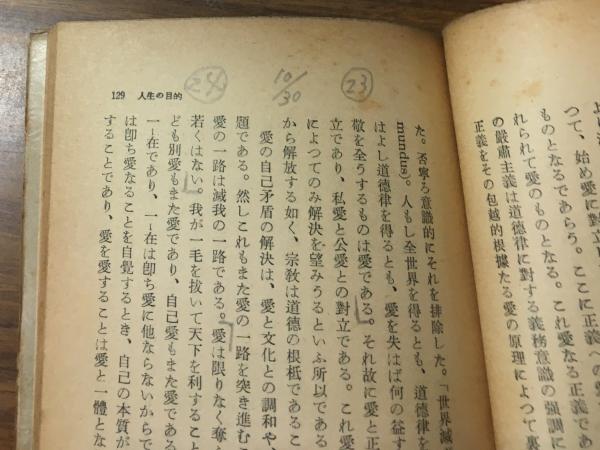 より
つて、始め愛に對立し
ものとなるであらう。ここに正義への愛
れられて愛のものとなる。これ愛なる正義であ
の嚴肅主義は道德律に對する義務意識の強調に
正義をその包越的根據たる愛の原理によつて裏
129 人生の目的
24
10/30
23
た。否寧ろ意識的にそれを排除した。「世界滅
mundus)。人もし全世界を得るとも、道德律を
はよし道德律を得るとも、愛を失はば何の益す
敬を全うするものは愛である。それ故に愛と正
立であり、私愛と公愛との對立である。これ愛
によつてのみ解決を望みうるといふ所以である
から解放する如く、宗敎は道德の根柢であるこ
愛の自己矛盾の解決は、愛と文化との調和や、
題である。然しこれもまた愛の一路を突き進むこ
愛の一路は滅我の一路である。愛は限りなく奪
若くはない。我が一毛を拔いて天下を利すること
ども別愛もまた愛であり、自己愛もまた愛である
一—在であり、一—在は卽ち愛に他ならないからで
は卽ち愛なることを自覺するとき、自己の本質が
することであり、愛を愛することは愛と一體とな